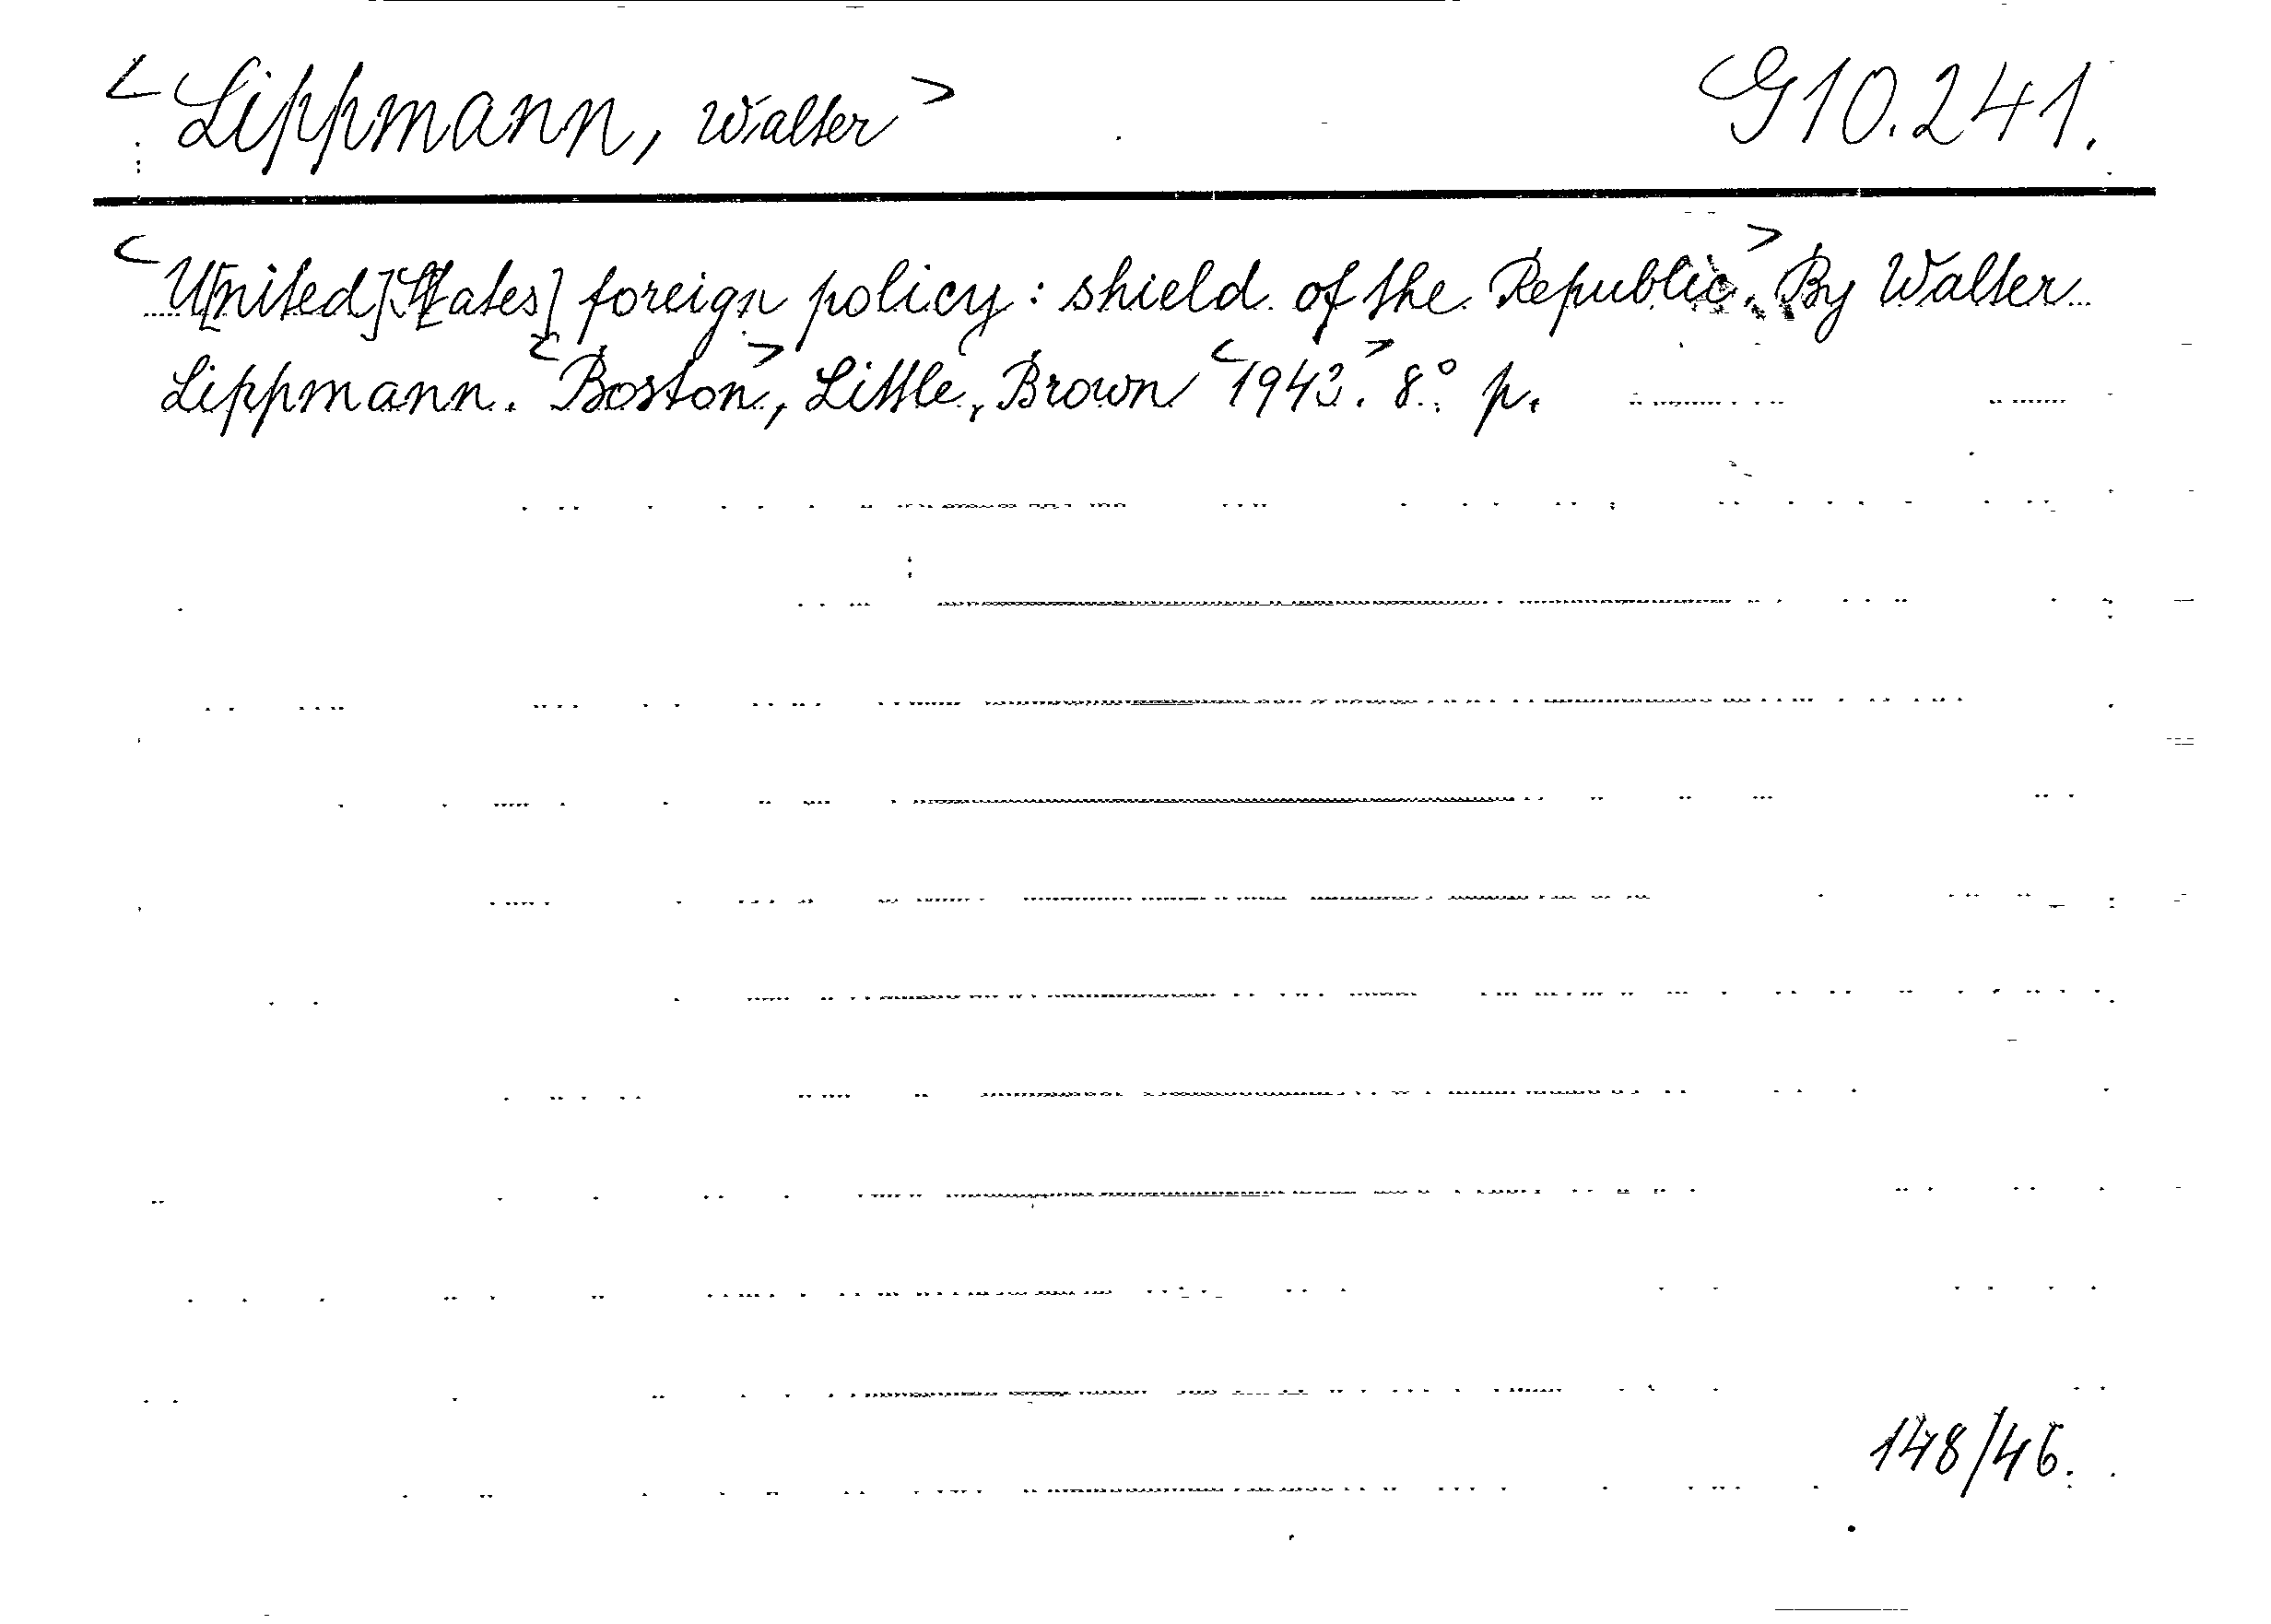 <Lippmann, Walter> G10.241.
<U[nited] S[tates] foreign policy: shield of the Republic>. By Walter
Lippmann. <Boston>, Little, Brown <1943>. 8° p.
148/46.